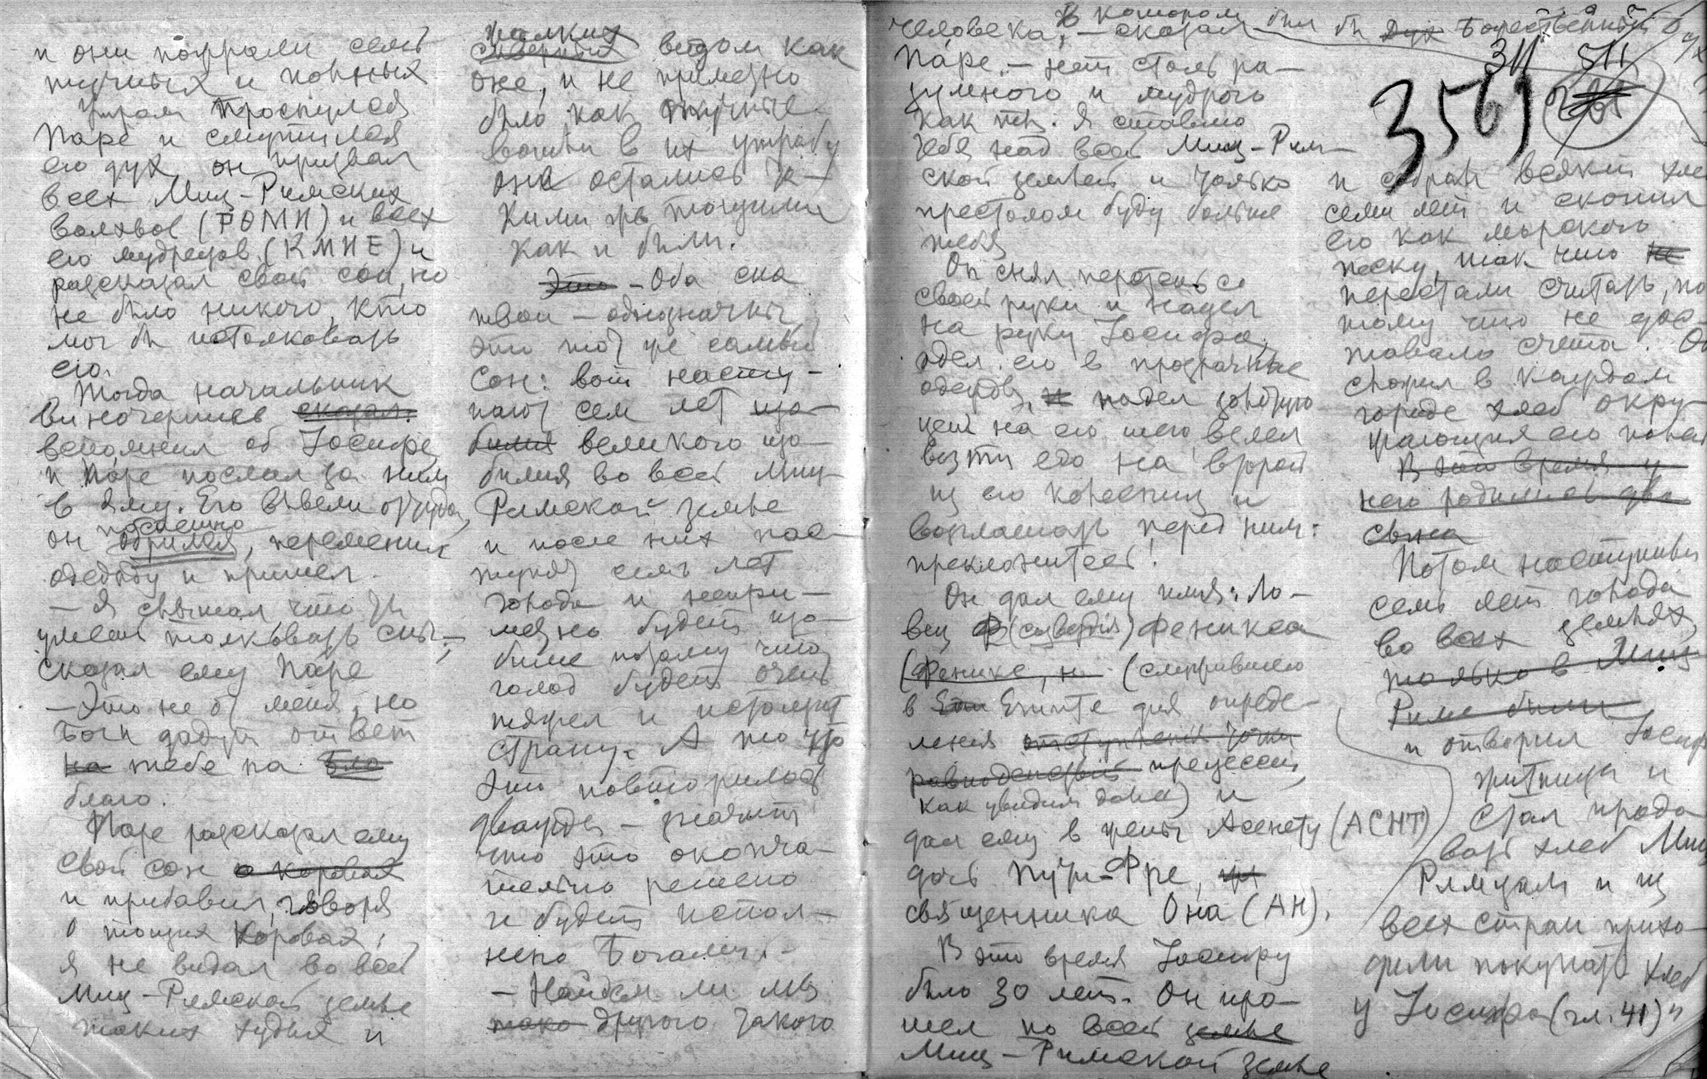 и они пожрали семь
тучных и полных
Утром проснулся
Паре и смутился
его дух, он призвал
всех Миц-Римских
волхвов (РОМИ) и всех
его мудрецов (КМНЕ) и
рассказал свой сон, но
не было никого, кто
мог бы истолковать
его.
Тогда начальник
виночерпиев сказал
вспомнил об Иосифе
и Паре послал за ним
в яму. Его вывели оттуда,
поспешно
он обрился, переменил
одежду и пришел.
— Я слышал что ты
умеешь толковать сны, —
сказал ему Паре
— Это не от меня, но
Боги дадут ответ
на тебе на бла
благо.
Паре рассказал ему
свой сон о коровах
и прибавил, говоря
о тощих коровах:
я не видал во всей
Миц-Римской земле
таких худых и
жалких
скверных видом как
оне, и не приметно
было как тучные
вошли в их утробу
оне остались та-
кими же тощими
как и были.
Это — Оба сна
твои — однозначны
это тот же самый
сон: вот насту-
пают сем лет изо-
билия великого изо-
билия во всей Миц-
Римской земле
и после них нас-
тупят семь лет
голода и непри-
метно будет изо-
билие потому что
голод будет очень
тяжел и истощит
страну. А то что
это повторилось
дважды — значит
что это оконча-
тельно решено
и будет испол-
нено Богами.
— Найдем ли мы
тако другого такого
человека, в котором был бы дух Божественный дух
— сказал
Паре, — нет столь ра-
зумного и мудрого
как ты. Я ставлю
тебя над всей Миц-Рим-
ской землей и только
престолом буду больше
тебя
Он снял перстень со
своей руки и надел
на руку Иосифа,
одел его в прозрачные
одежды, и надел золотую
цепь на его шею велел
везти его на второй
из его колесниц и
возглашать перед ним:
преклонитесь!
Он дал ему имя: Ло-
вец Ф (созвездия) Феникса
(Феникс, н (служившего
в Еги Египте для опреде-
ления отступления точки
равноденствий прецессии,
как увидим далее) и
дал ему в жены Асенету (АСНТ)
дочь Пути-Фре,
священника Она (АН).
В это время Иосифу
было 30 лет. Он про-
шел по всей земле
Миц-Римской земле
311 511
3569
и собрал всякий хлеб
семи лет и скопил
его как морского
песку, так что не
перестали считать, по
тому что не дос-
тавало счета. Он
сложил в каждом
городе хлеб окру-
жающих его полей
В это время у
него родились два
сына
Потом наступили
семь лет голода
во всех землях,
только в Миц
Риме были
и отворил Иосиф
житницы и
стал прода
вать хлеб Миц
Римцам и из
всех стран прихо-
дили покупать хлеб
у Иосифа (гл. 41)"